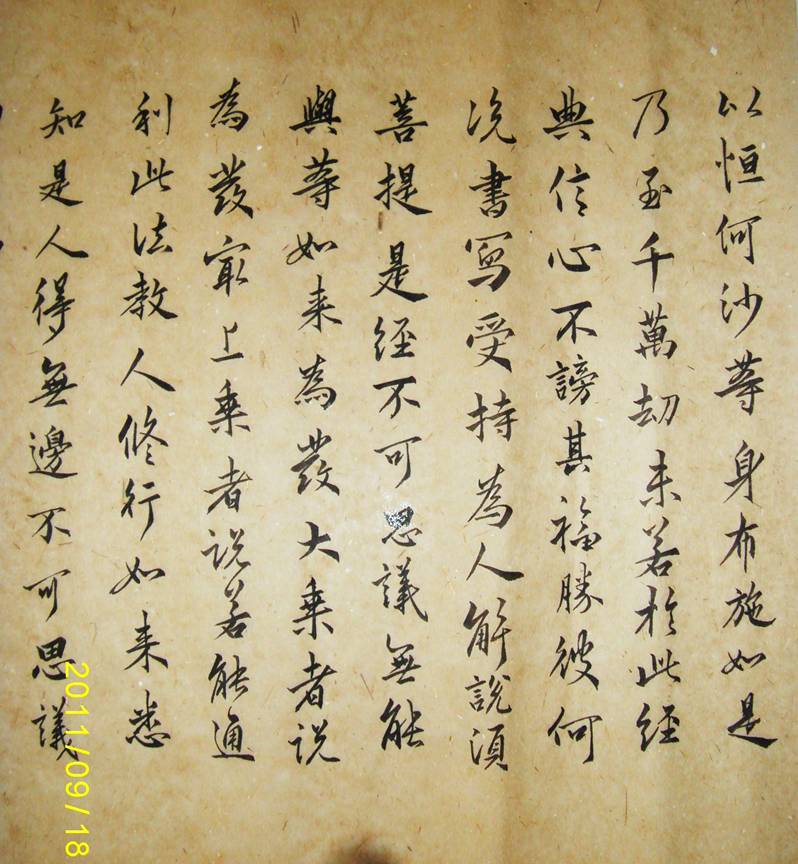 以恒何沙等身布施如是
乃至千萬劫未若於此經
典信心不謗其福勝彼何
况書寫受持為人解說須
菩提是經不可思議無能
與等如来為發大乗者説
為發冣上乗者説若能通
利此法教人修行如来悉
知是人得無邊不可思議
2011/09/18